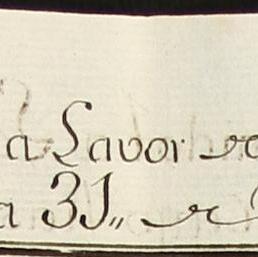 a Lavor
a 31,,